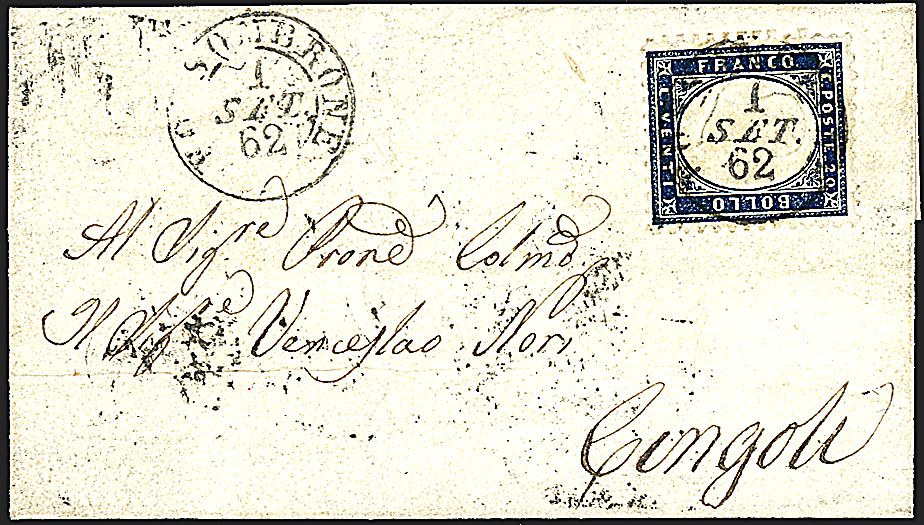 SOMBRONE
1
SET.
62
FRANCO
C. POSTE 20
BOLLO
LI VENTI
1
SET.
62
Al Sigre Prone Colmo
Il Sigre Venceslao Neri
Cingoli